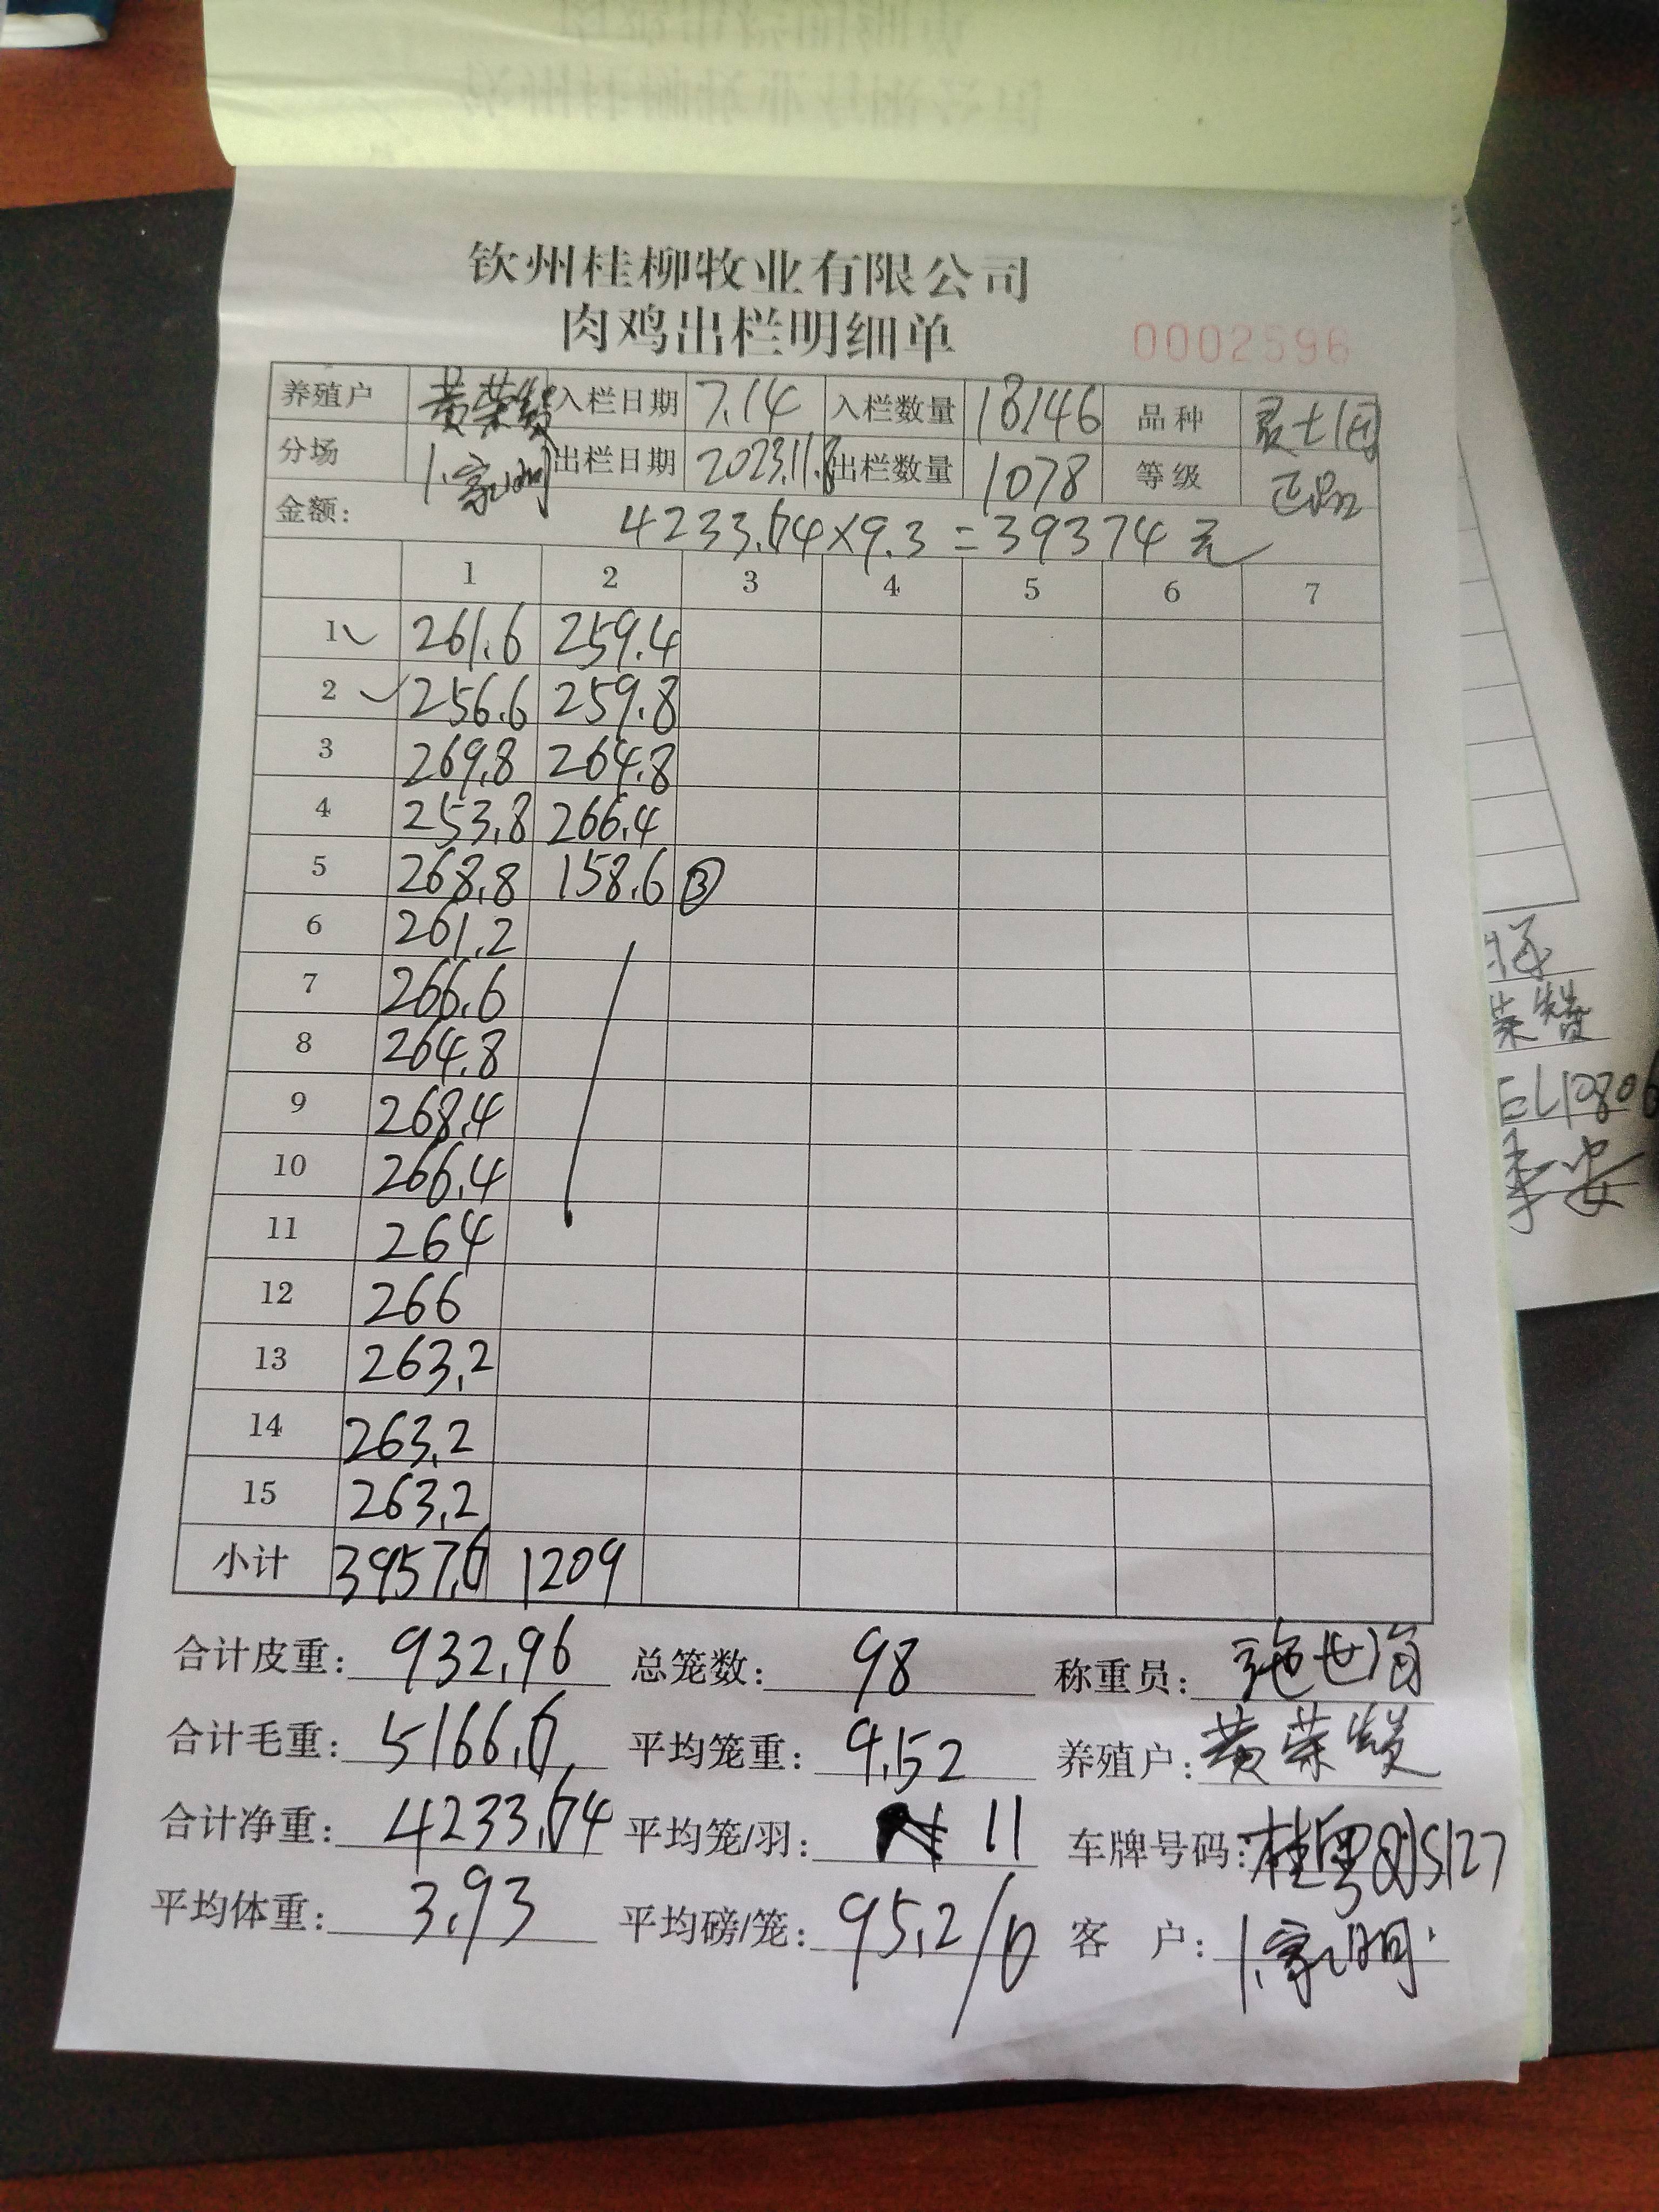 钦州桂柳牧业有限公司
肉鸡出栏明细单
0002596
养殖户 黄荣 入栏日期 7.14 入栏数量 18146 品种
分场 出栏日期 2023.11.8 出栏数量 1078 等级 正品
金额: 4233.64×9.3=39374元
1 2 3 4 5 6 7
1 261.6 259.4
2 256.6 259.8
3 269.8 264.8
4 253.8 266.4
5 268.8 158.6 ③
6 261.2
7 266.6
8 264.8
9 268.4
10 266.4
11 264
12 266
13 263.2
14 263.2
15 263.2
小计 3957.6 1209
合计皮重: 932.96 总笼数: 98 称重员: 施世海
合计毛重: 5166.6 平均笼重: 9.52 养殖户: 黄荣
合计净重: 4233.64 平均笼/羽: 11 车牌号码: 桂
平均体重: 3.93 平均磅/笼: 95.2/ 客 户:
荣
EL1080
李安